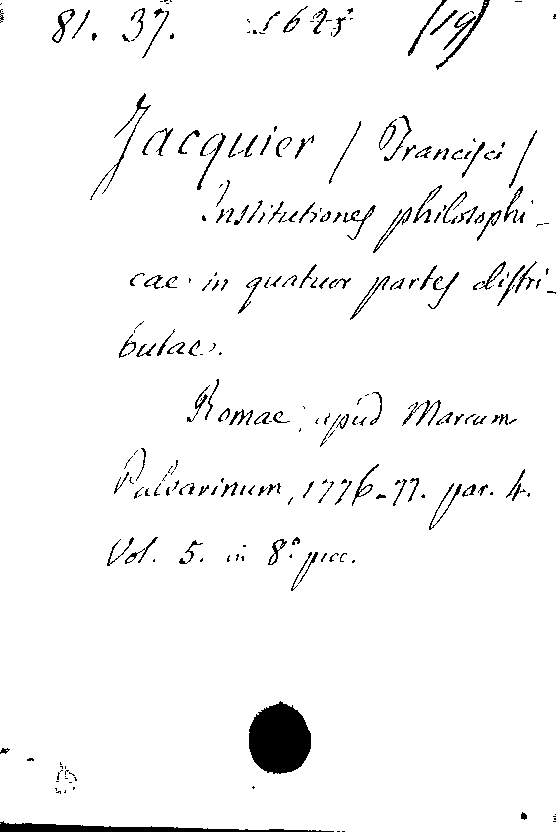 81. 37. 5625 (19)
Jacquier / Francisci /
Institutiones philosophi-
cae in quatuor partes distri-
butae.
Romae, apud Marcum
Palearinum, 1776-77. par. 4.
Vol. 5. in 8° picc.